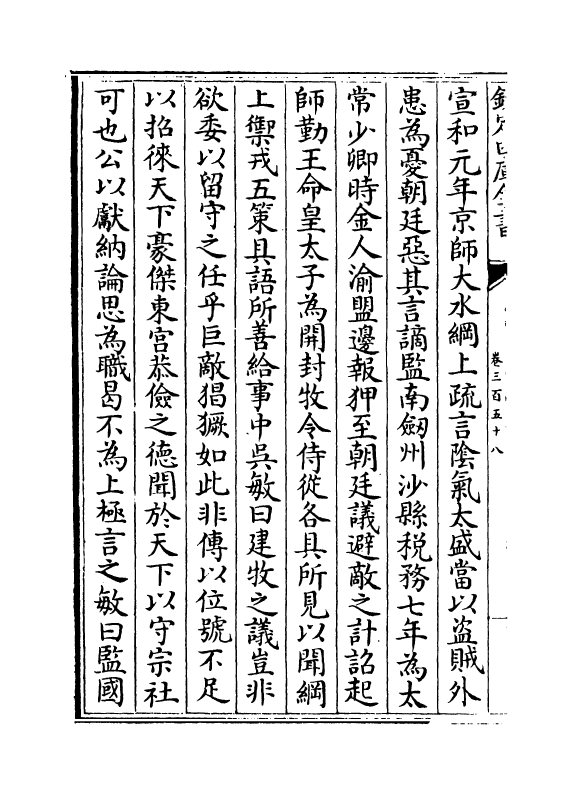 欽定四庫全書
卷三百五十八
宣和元年京師大水綱上疏言陰氣太盛當以盜賊外
患為憂朝廷惡其言謫監南劔州沙縣税務七年為太
常少卿時金人渝盟邊報狎至朝廷議避敵之計詔起
師勤王命皇太子為開封牧令侍從各具所見以聞綱
上禦戎五策具語所善給事中吳敏曰建牧之議豈非
欲委以留守之任乎巨敵猖獗如此非傳以位號不足
以招徠天下豪傑東宫恭儉之德聞於天下以守宗社
可也公以獻納論思為職曷不為上極言之敏曰監國